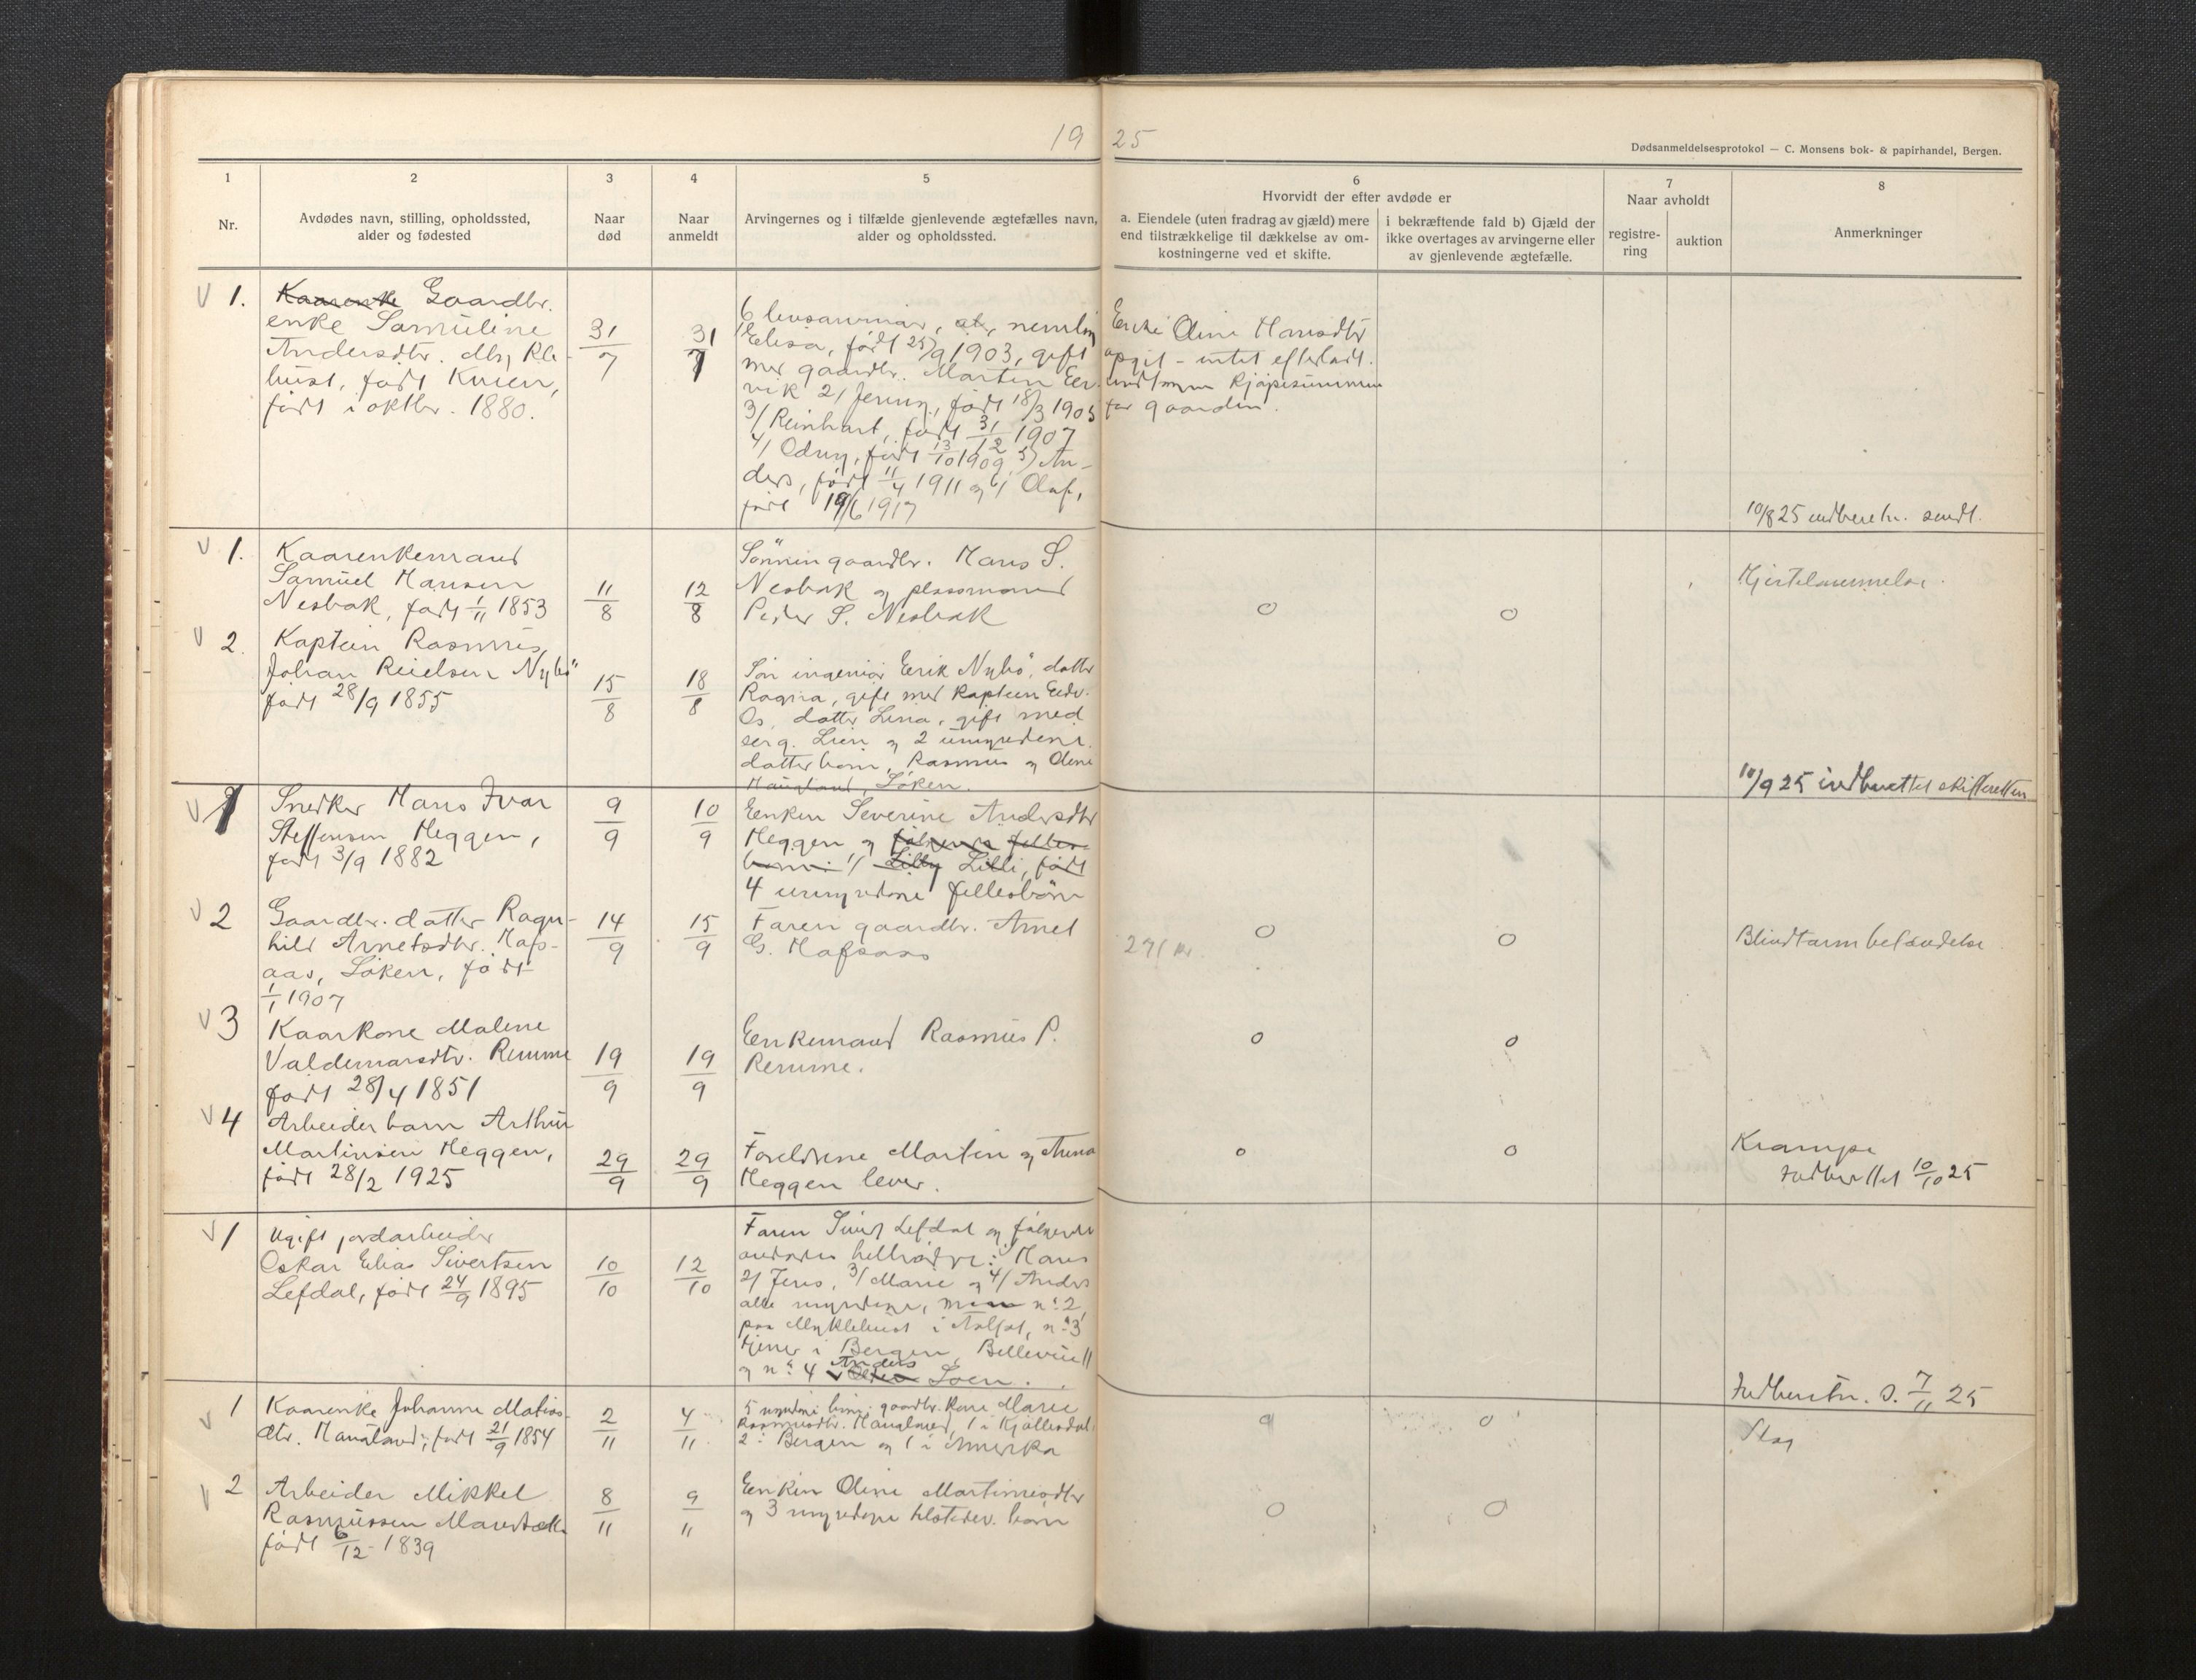 19 25
Dødsanmeldelsesprotokol — C. Monsens bok- & papirhandel, Bergen.
1
Nr.
2
Avdødes navn, stilling, opholdssted,
alder og fødested
3
Naar
død
4
Naar
anmeldt
5
Arvingernes og i tilfælde gjenlevende ægtefælles navn,
alder og opholdssted.
6
Hvorvidt der efter avdøde er
a. Eiendele (uten fradrag av gjæld) mere
end tilstrækkelige til dækkelse av om-
kostningerne ved et skifte.
i bekræftende fald b) Gjæld der
ikke overtages av arvingerne eller
av gjenlevende ægtefælle.
7
Naar avholdt
registre-
ring
auktion
8
Anmerkninger
V 1.
Kaarenke Gaardbr.
enke Samuline
Andersdtr. Mykle-
hust, født
født i oktbr. 1880.
31/7
31/7
6 livsarvinger, nemlig
1/ Elisa, født 25/9 1903, gift
med gaardbr. Martin
vik 2/ Jenny, født 18/3 1905
3/ Reinhart, født 31/12 1907
4/ Odny, født 13/10 1909 5) An-
ders, født 11/4 1911 og 6/ Olaf,
født 19/6 1917
Oline Hansdtr
opgit - intet efterladt.
kjøpesummen
for gaarden.
10/8 25 indberetn. sendt.
V 1.
Kaarenkemand
Samuel Hansen
Nesbak, født 1/11 1853
11/8
12/8
Sønnen gaardbr. Hans S.
Nesbak og plassmand
Peder S. Nesbak
0
0
Hjertelammelse.
V 2.
Kaptein Rasmus
Johan Reielsen Nybø
født 28/9 1855
15/8
18/8
Søn ingeniør Erik Nybø, datter
Ragna, gift med kaptein Edv.
Os, datter Lina, gift med
serg. Lien og 2 umyndige
datterbørn, Rasmus og Oline
Haugland, Løken.
10/9 25 indberettet skifteretten
V 1
Snedker Hans Ivar
Steffensen Heggen,
født 3/9 1882
9/9
10/9
Enken Severine Andersdtr
Heggen og følgende felles-
børn: 1/ Lilly Lilli, født
4 umyndige fellesbørn
V 2
Gaardbr. datter Ragn-
hild Arnetsdtr. Hafs-
aas, Løken, født
1/1 1907
14/9
15/9
Faren gaardbr. Arnet
G. Hafsaas
0
0
Blindtarmbetændelse
V 3
Kaarkone Malene
Valdemarsdtr. Remme
født 28/4 1851
19/9
19/9
Enkemand Rasmus P.
Remme.
0
0
V 4
Arbeiderbarn Arthur
Martinsen Heggen,
født 28/2 1925
29/9
29/9
Foreldrene Martin og Anna
Heggen lever.
0
0
Krampe
Indberettet 10/10 25
V 1
Ugift jordarbeider
Oskar Elias Sivertsen
Lefdal, født 24/9 1895
10/10
12/10
Faren Sivert Lefdal og følgende
helsøskende: Hans
2/ Jens, 3/ Marie og 4/ Anders
alle myndige, n: 2
paa Myklebust i Aalfot, n: 3
tjener i Bergen, Bellevue 11
og n: 4 Anders Loen.
Indberetn. s. 7/11 25
V 1
Kaarenke Johanne Matias-
dtr. Haugland, født 21/9 1854
2/11
4/11
5 myndige børn: gaardbr. kone Marie
Rasmusdtr. Haugland, 1 i Kjøllesdal
2 i Bergen og 1 i Amerika
0
0
Slag
V 2
Arbeider Mikkel
Rasmussen Maurstad
født 6/12 1839
8/11
9/11
Enken Oline Martinusdtr
og 3 myndige tilstedev. børn
0
0